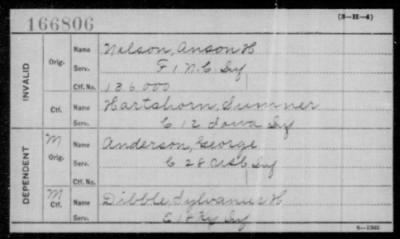 166806
(3-H-4)
INVALID
Orig.
Name Nelson, Anson H
Serv. F 1 N.C. Inf
Ctf. No. 136.000
Ctf.
Name Hartshorn, Sumner
Serv. C 12 Iowa Inf
DEPENDENT
M
Orig.
Name Anderson, George
Serv. C 28 Inf
Ctf. No.
M
Ctf.
Name Dibble, Sylvanus H
Serv. C 18 Ky Inf